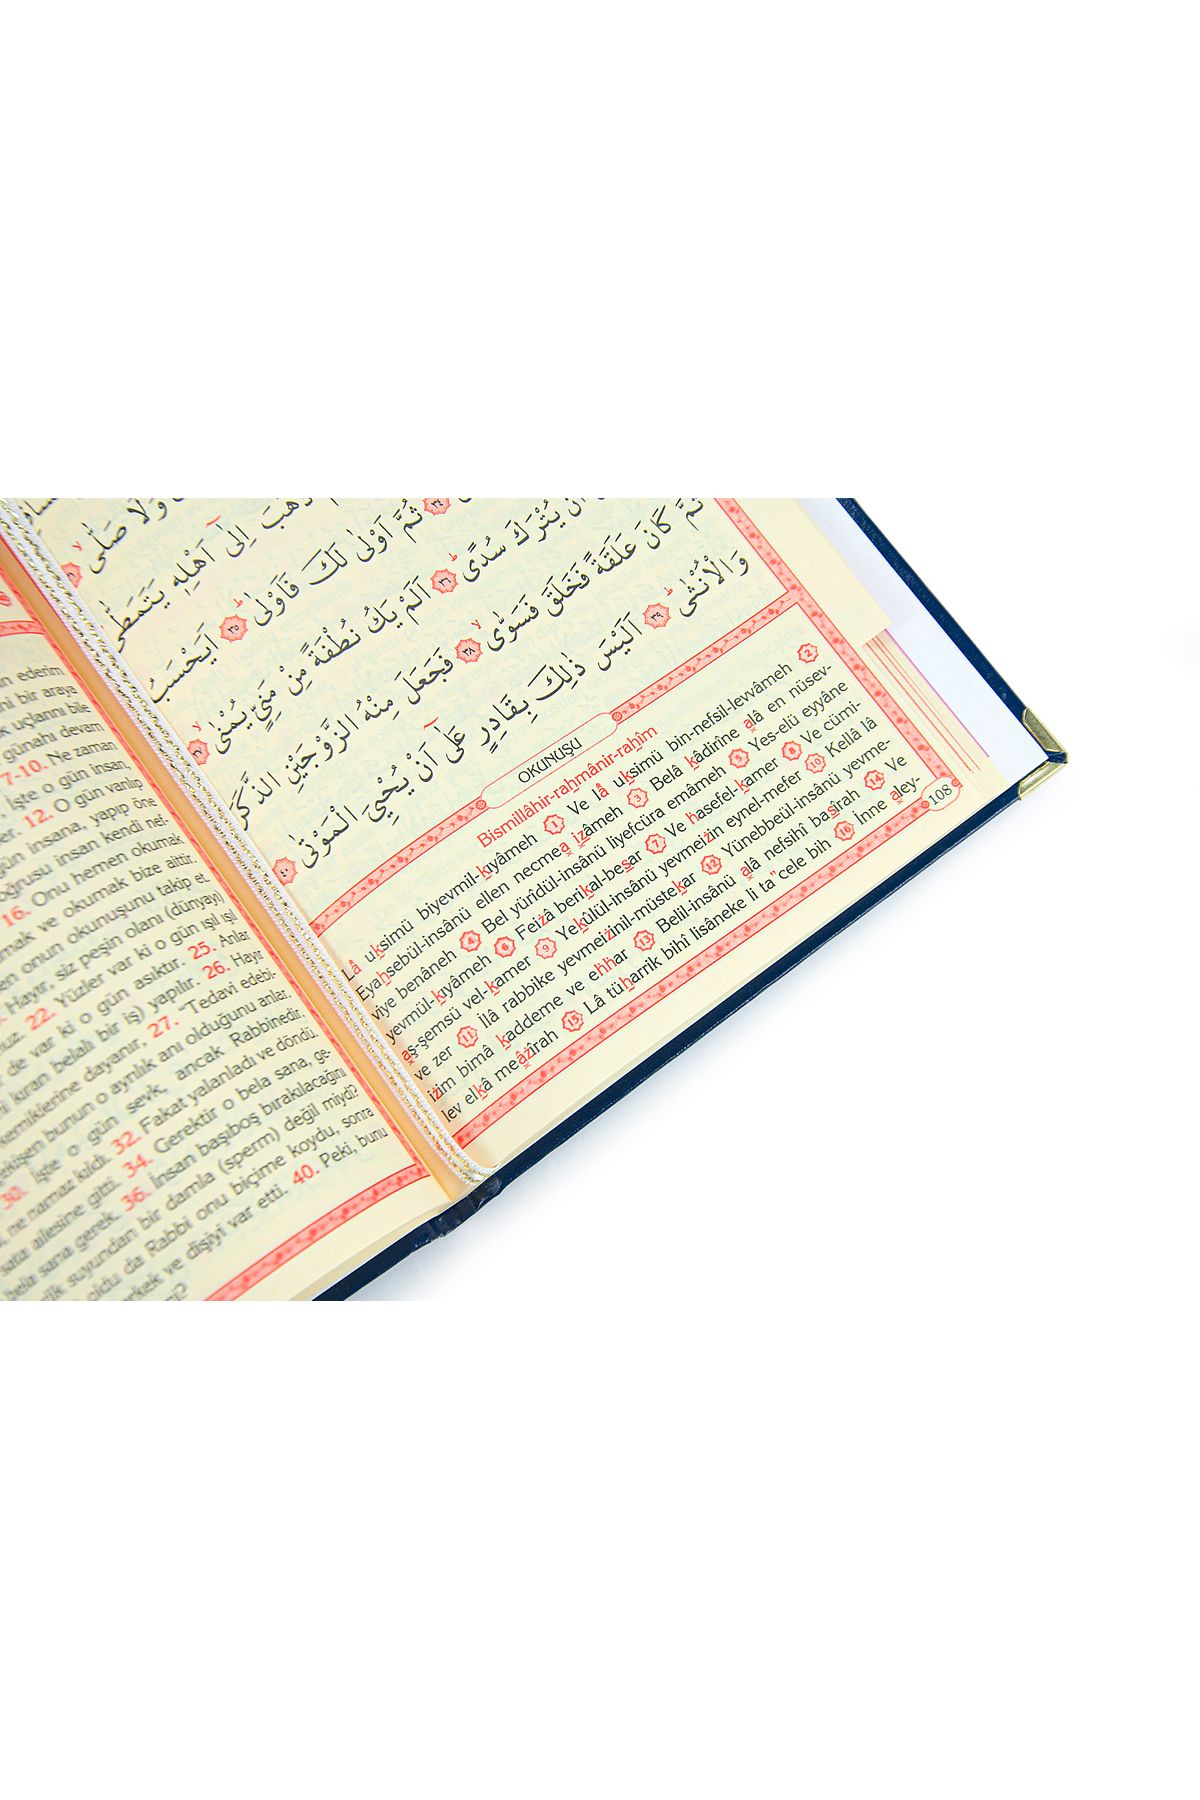 وَلَا صَلّٰىۙ
ذَهَبَ اِلٰٓى اَهْلِه۪ يَتَمَطّٰى
٣٤ ثُمَّ اَوْلٰى لَكَ فَاَوْلٰىۜ ٣٥ اَيَحْسَبُ
اَنْ يُتْرَكَ سُدًىۜ ٣٦ اَلَمْ يَكُ نُطْفَةً مِنْ مَنِيٍّ يُمْنٰىۙ ٣٧
ثُمَّ كَانَ عَلَقَةً فَخَلَقَ فَسَوّٰىۙ ٣٨ فَجَعَلَ مِنْهُ الزَّوْجَيْنِ الذَّكَرَ
وَالْاُنْثٰىۜ ٣٩ اَلَيْسَ ذٰلِكَ بِقَادِرٍ عَلٰٓى اَنْ يُحْيِيَ الْمَوْتٰى ٤٠
OKUNUŞU
Bismillâhir-rahmânir-rahîm
Lâ uksimü biyevmil-kıyâmeh 1 Ve lâ uksimü bin-nefsil-levvâmeh 2
Eyahsebül-insânü ellen necmea izâmeh 3 Belâ kâdirîne alâ en nüsev-
viye benâneh 4 Bel yurîdül-insânü liyefcüra emâmeh 5 Yes-elü eyyâne
yevmül-kıyâmeh 6 Feizâ berikal-besar 7 Ve hasefel-kamer 8 Ve cümi-
aş-şemsü vel-kamer 9 Yekûlül-insânü yevmeizin eynel-mefer 10 Kellâ lâ
ve zer 11 İlâ rabbike yevmeizinil-müstekar 12 Yünebbeül-insânü yevme-
izim bimâ kaddeme ve ehhar 13 Belil-insânü alâ nefsihî basîrah 14 Ve
lev elkâ meâzîrah 15 Lâ tüharrik bihî lisâneke li ta"cele bih 16 İnne aley-
108
ederim
bir araya
uçlarını bile
günahı devam
7-10. Ne zaman
İşte o gün insan,
12. O gün varılıp
gün insana, yapıp öne
oğrusu insan kendi nef-
16. Onu hemen okumak
ve okumak bize aittir.
onun okunuşunu takip et.
Hayır, siz peşin olanı (dünyayı)
22. Yüzler var ki o gün ışıl ışıl
de var ki o gün asıktır. 25. Anlar
kıran belalı bir iş) yapılır. 26. Hayır
kemiklerine dayanır, 27. "Tedavi edebi-
bunun o ayrılık anı olduğunu anlar.
30. İşte o gün sevk, ancak Rabbinedir.
ne namaz kıldı. 32. Fakat yalanladı ve döndü.
ailesine gitti. 34. Gerektir o bela sana, ge-
bela sana gerek. 36. İnsan başıboş bırakılacağını
suyundan bir damla (sperm) değil miydi?
oldu da Rabbi onu biçime koydu, sonra
erkek ve dişiyi var etti. 40. Peki, bunu